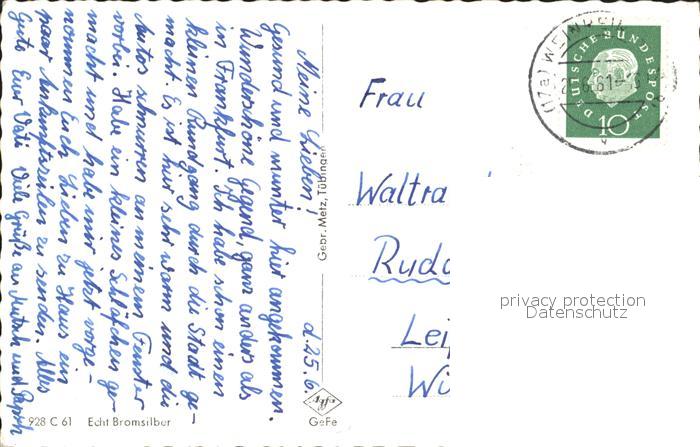 Meine Lieben!
d. 25.6.
Gesund und munter hier angekommen.
Wunderschöne Gegend, ganz anders als
in Frankfurt. Ich habe schon einen
kleinen Rundgang durch die Stadt ge-
macht. Es ist hier sehr warm und die
Autos schnurren an meinem Fenster
vorbei. Habe ein kleines Schläfchen ge-
macht und habe mir jetzt vorge-
nommen Euch Lieben zu Haus ein
paar Ankunftszeilen zu senden. Alles
Gute Eur Vati Viele Grüße an
Gebr. Metz, Tübingen
928 C 61 Echt Bromsilber
Agfa
GeFe
Frau
Waltra
Rudo
Lei
Wi
(17a) WEINHEIM
61
DEUTSCHE BUNDESPOST
10
privacy protection
Datenschutz